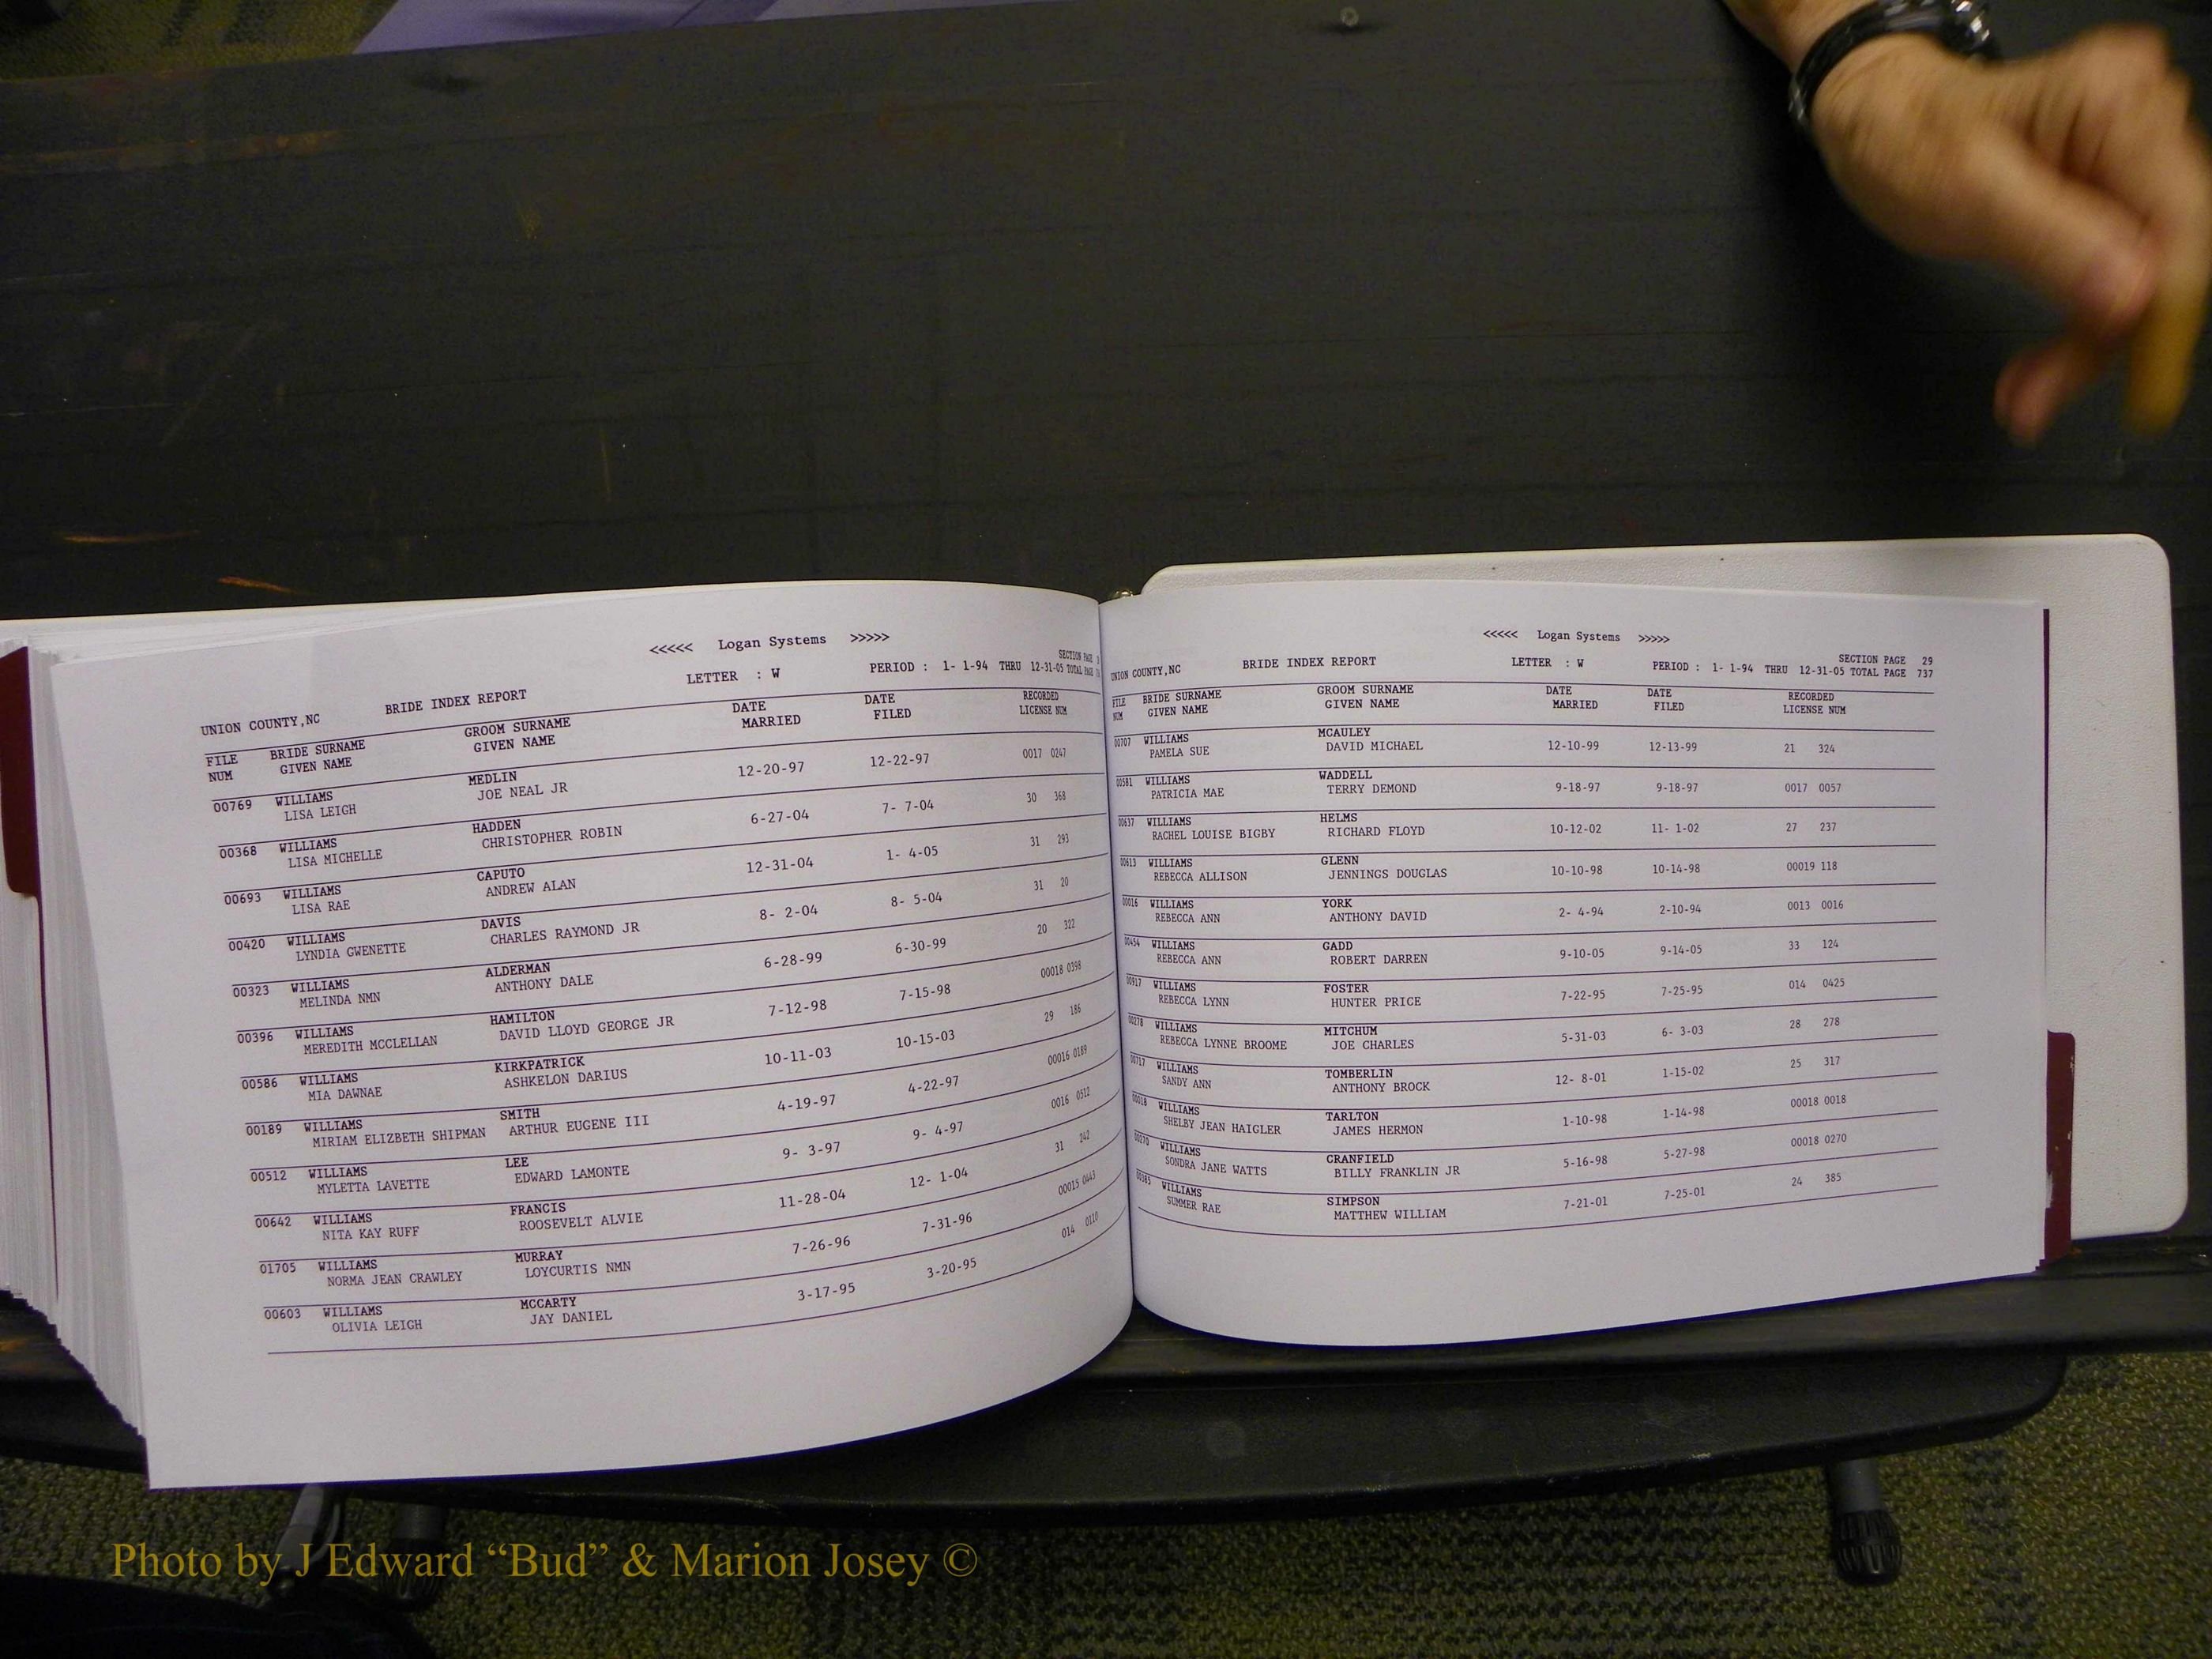 <<<<< Logan Systems >>>>>
SECTION PAGE
UNION COUNTY,NC BRIDE INDEX REPORT LETTER : W PERIOD : 1- 1-94 THRU 12-31-05 TOTAL PAGE
FILE BRIDE SURNAME GROOM SURNAME DATE DATE RECORDED
NUM GIVEN NAME GIVEN NAME MARRIED FILED LICENSE NUM
00769 WILLIAMS MEDLIN 12-20-97 12-22-97 0017 0247
LISA LEIGH JOE NEAL JR
00368 WILLIAMS HADDEN 6-27-04 7- 7-04 30 368
LISA MICHELLE CHRISTOPHER ROBIN
00693 WILLIAMS CAPUTO 12-31-04 1- 4-05 31 293
LISA RAE ANDREW ALAN
00420 WILLIAMS DAVIS 8- 2-04 8- 5-04 31 20
LYNDIA GWENETTE CHARLES RAYMOND JR
00323 WILLIAMS ALDERMAN 6-28-99 6-30-99 20 322
MELINDA NMN ANTHONY DALE
00396 WILLIAMS HAMILTON 7-12-98 7-15-98 00018 0398
MEREDITH MCCLELLAN DAVID LLOYD GEORGE JR
00586 WILLIAMS KIRKPATRICK 10-11-03 10-15-03 29 186
MIA DAWNAE ASHKELON DARIUS
00189 WILLIAMS SMITH 4-19-97 4-22-97 00016 0189
MIRIAM ELIZBETH SHIPMAN ARTHUR EUGENE III
00512 WILLIAMS LEE 9- 3-97 9- 4-97 0016 0512
MYLETTA LAVETTE EDWARD LAMONTE
00642 WILLIAMS FRANCIS 11-28-04 12- 1-04 31 242
NITA KAY RUFF ROOSEVELT ALVIE
01705 WILLIAMS MURRAY 7-26-96 7-31-96 00015 0443
NORMA JEAN CRAWLEY LOYCURTIS NMN
00603 WILLIAMS MCCARTY 3-17-95 3-20-95 014 0110
OLIVIA LEIGH JAY DANIEL
<<<<< Logan Systems >>>>>
SECTION PAGE 29
UNION COUNTY,NC BRIDE INDEX REPORT LETTER : W PERIOD : 1- 1-94 THRU 12-31-05 TOTAL PAGE 737
FILE BRIDE SURNAME GROOM SURNAME DATE DATE RECORDED
NUM GIVEN NAME GIVEN NAME MARRIED FILED LICENSE NUM
00707 WILLIAMS MCAULEY 12-10-99 12-13-99 21 324
PAMELA SUE DAVID MICHAEL
00581 WILLIAMS WADDELL 9-18-97 9-18-97 0017 0057
PATRICIA MAE TERRY DEMOND
00637 WILLIAMS HELMS 10-12-02 11- 1-02 27 237
RACHEL LOUISE BIGBY RICHARD FLOYD
00613 WILLIAMS GLENN 10-10-98 10-14-98 00019 118
REBECCA ALLISON JENNINGS DOUGLAS
00016 WILLIAMS YORK 2- 4-94 2-10-94 0013 0016
REBECCA ANN ANTHONY DAVID
00454 WILLIAMS GADD 9-10-05 9-14-05 33 124
REBECCA ANN ROBERT DARREN
00917 WILLIAMS FOSTER 7-22-95 7-25-95 014 0425
REBECCA LYNN HUNTER PRICE
00278 WILLIAMS MITCHUM 5-31-03 6- 3-03 28 278
REBECCA LYNNE BROOME JOE CHARLES
00717 WILLIAMS TOMBERLIN 12- 8-01 1-15-02 25 317
SANDY ANN ANTHONY BROCK
00018 WILLIAMS TARLTON 1-10-98 1-14-98 00018 0018
SHELBY JEAN HAIGLER JAMES HERMON
00270 WILLIAMS CRANFIELD 5-16-98 5-27-98 00018 0270
SONDRA JANE WATTS BILLY FRANKLIN JR
WILLIAMS SIMPSON 7-21-01 7-25-01 24 385
SUMMER RAE MATTHEW WILLIAM
Photo by J Edward “Bud” & Marion Josey ©